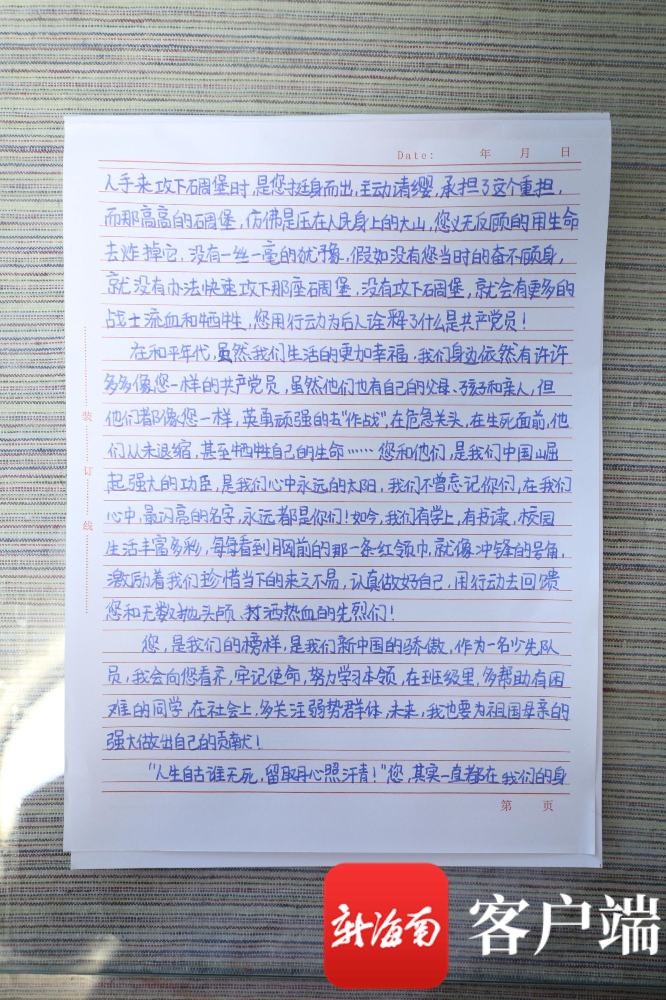 Date: 年 月 日
人手来攻下碉堡时，是您挺身而出，主动请缨，承担了这个重担，
而那高高的碉堡，仿佛是压在人民身上的大山，您义无反顾的用生命
去炸掉它，没有一丝一毫的犹豫，假如没有您当时的奋不顾身，
就没有办法快速攻下那座碉堡，没有攻下碉堡，就会有更多的
战士流血和牺牲，您用行动为后人诠释了什么是共产党员！
在和平年代，虽然我们生活的更加幸福，我们身边依然有许许
多多像您一样的共产党员，虽然他们也有自己的父母、孩子和亲人，但
他们都像您一样，英勇顽强的去“作战”，在危急关头，在生死面前，他
们从未退缩，甚至牺牲自己的生命……您和他们，是我们中国崛
起强大的功臣，是我们心中永远的太阳，我们不曾忘记你们，在我们
心中，最闪亮的名字，永远都是你们！如今，我们有学上，有书读，校园
生活丰富多彩，每每看到胸前的那一条红领巾，就像冲锋的号角，
激励着我们珍惜当下的来之不易，认真做好自己，用行动去回馈
您和无数抛头颅、洒热血的先烈们！
您，是我们的榜样，是我们新中国的骄傲，作为一名少先队
员，我会向您看齐，牢记使命，努力学习本领，在班级里，多帮助有困
难的同学，在社会上，多关注弱势群体，未来，我也要为祖国母亲的
强大做出自己的贡献！
“人生自古谁无死，留取丹心照汗青！”您，其实一直都在我们的身
第 页
装
订
线
新海南 客户端